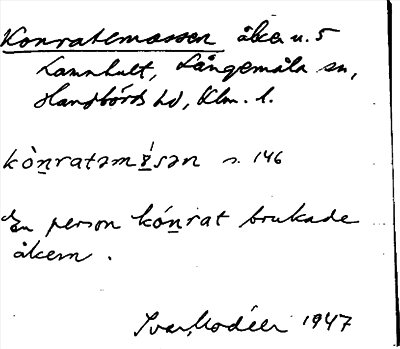 Konratemossen åker u. 5
Lannhult, Långemåla sn,
Handbörds hd, Klm. l.
kòn̲ratəm ɤ̲́sən s. 146
En person kón̲rat brukade
åkern.
Ivar Modéer 1947